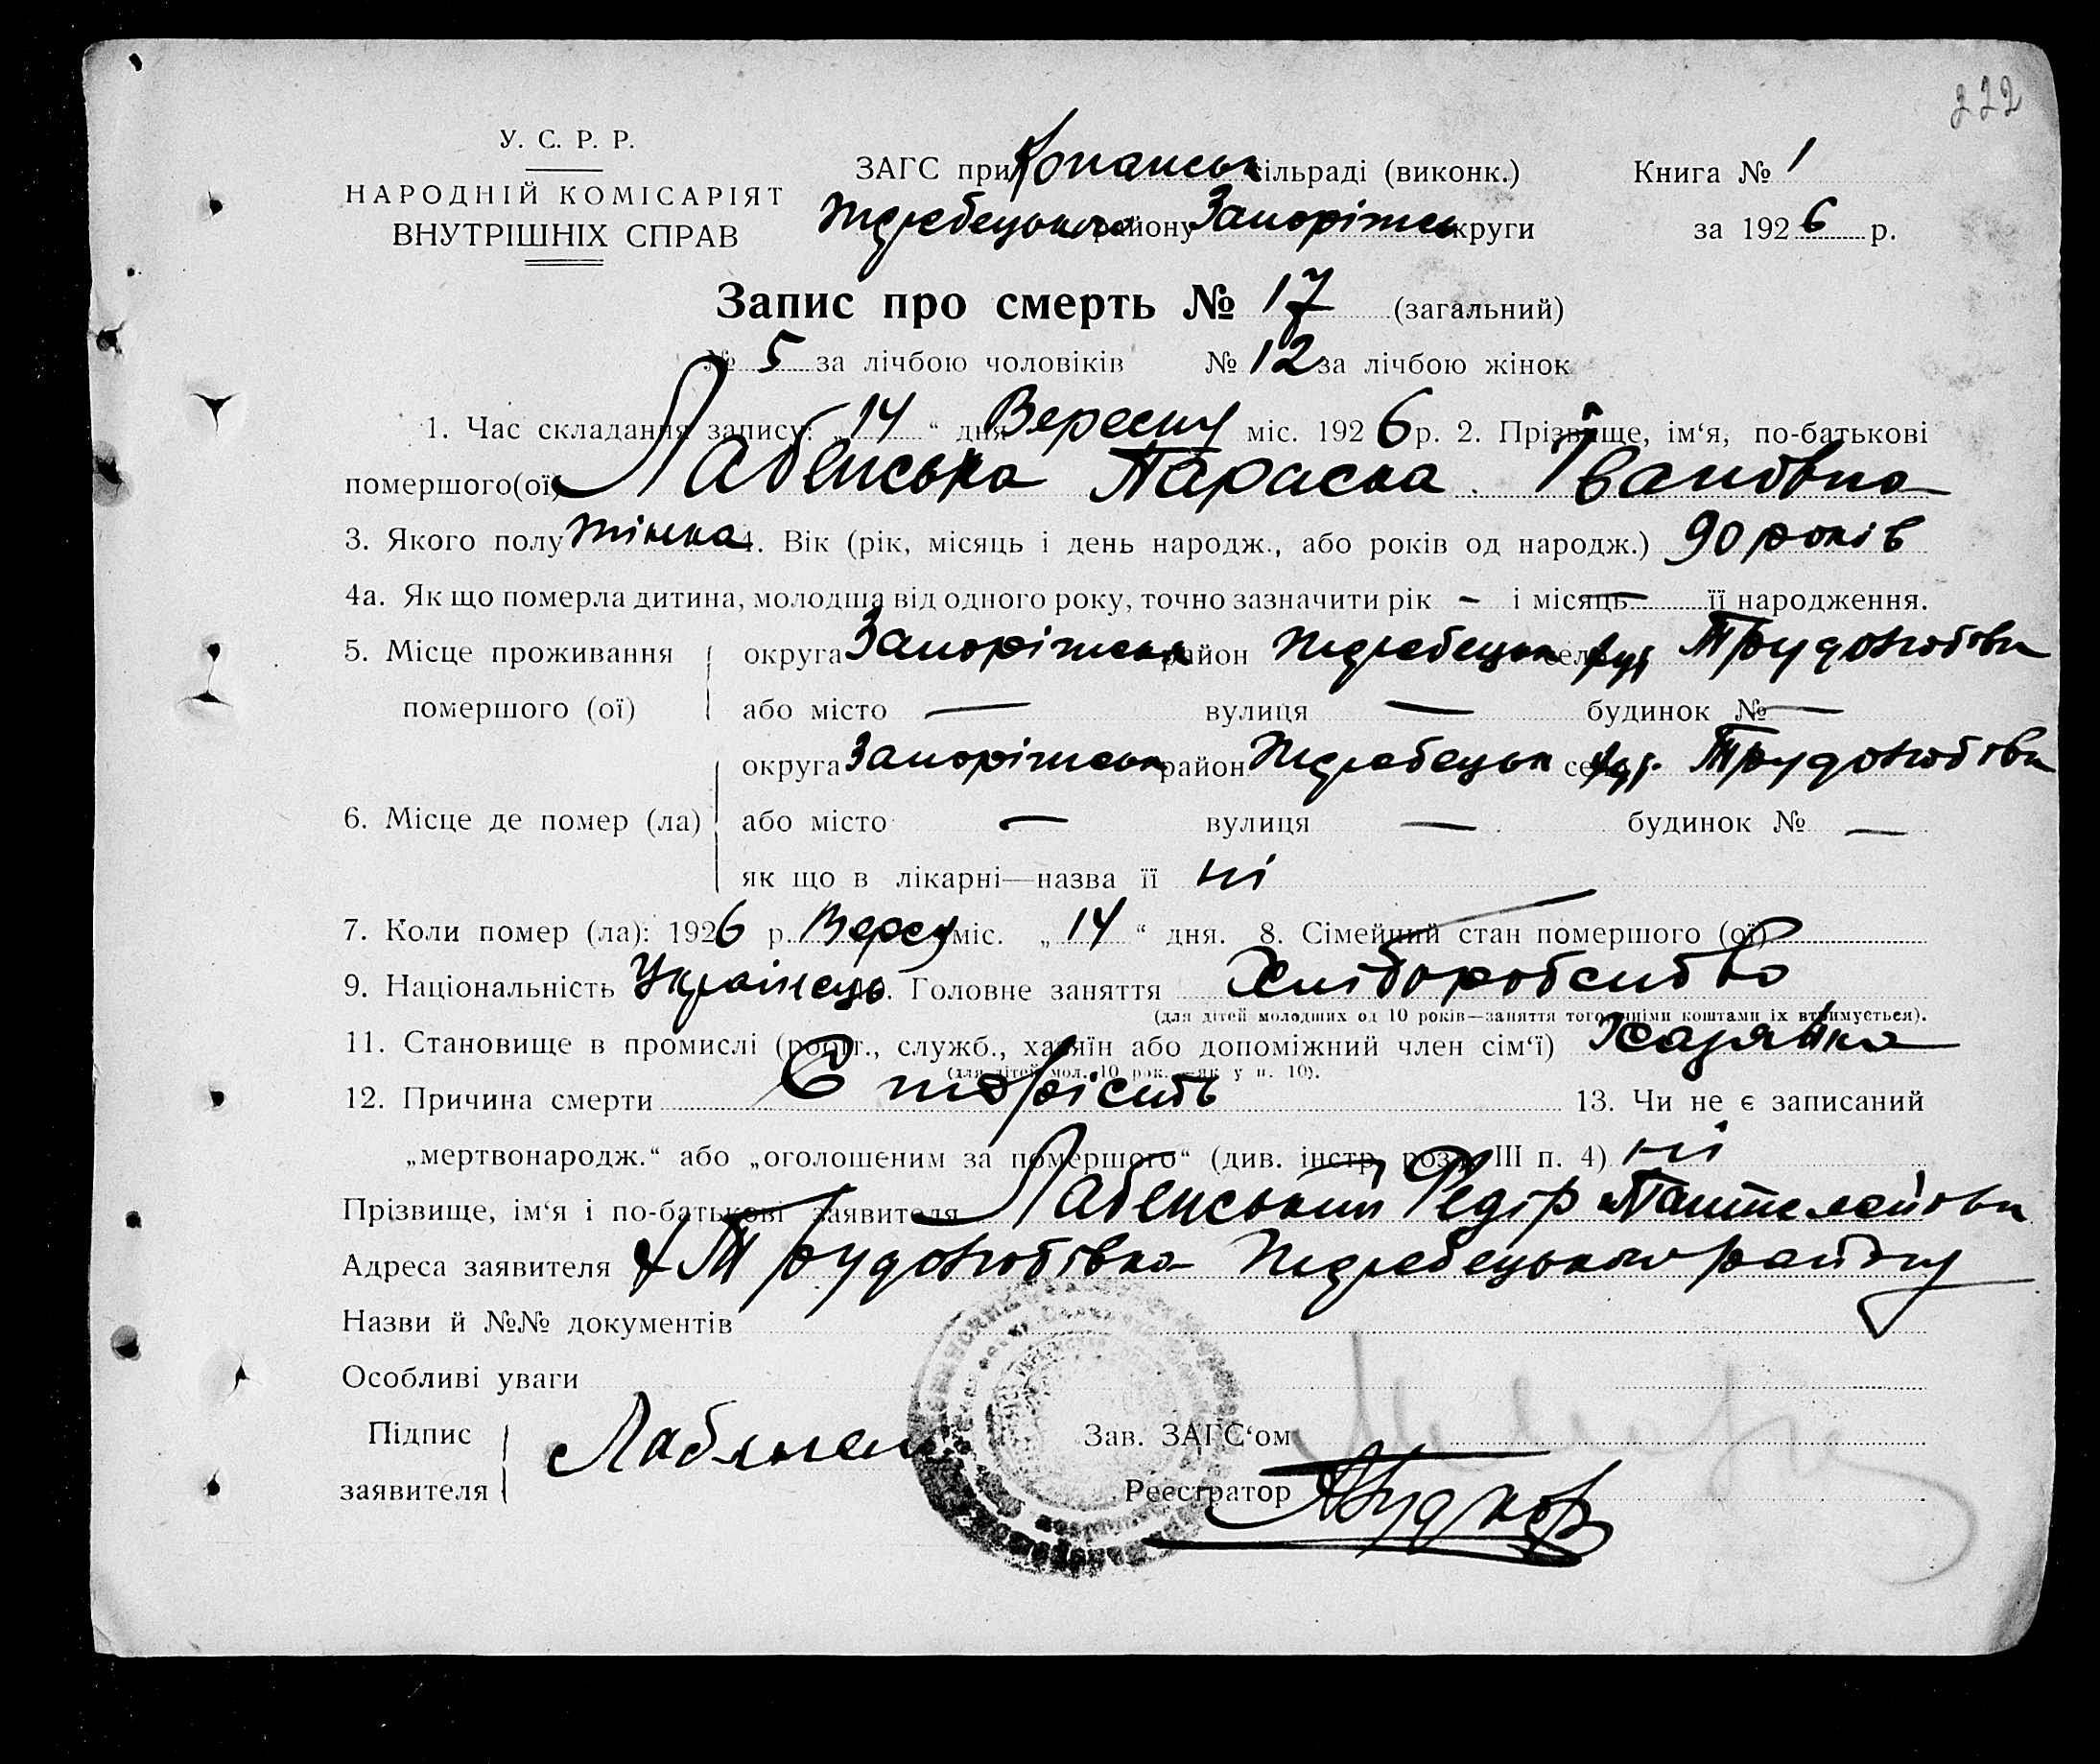 222
У. С. Р. Р.
НАРОДНІЙ КОМІСАРІЯТ
ВНУТРІШНІХ СПРАВ
ЗАГС при Копанськ сільраді (виконк.)
Жеребецького району Запоріжськ округи
Книга № 1
за 1926 р.
Запис про смерть № 17 (загальний)
№ 5 за лічбою чоловіків № 12 за лічбою жінок
1. Час складання запису: „14“ дня Вересну міс. 1926 р. 2. Прізвище, ім‘я, по-батькові
помершого(ої) Лабенська Параска Івановна
3. Якого полу жінка 4. Вік (рік, місяць і день народж., або років од народж.) 90 років
4а. Як що померла дитина, молодша від одного року, точно зазначити рік – і місяць — її народження.
5. Місце проживання помершого (ої) округа Запоріжська район Жеребецьк село Трудолюбівка
або місто — вулиця — будинок № —
6. Місце де помер (ла) округа Запоріжськ район Жеребецьк село Трудолюбівка
або місто — вулиця — будинок № —
як що в лікарні—назва її ні
7. Коли помер (ла): 1926 р. Верес міс. „14“ дня. 8. Сімейний стан помершого (ої) —
9. Національність Українець 10. Головне заняття Хліборобство
(для дітей молодших од 10 років—заняття того, чиїми коштами їх втримується).
11. Становище в промислі (робіт., служб., хазяїн або допоміжний член сім‘ї) Хазяйка
(для дітей мол. 10 рок.—як у п. 10).
12. Причина смерти Старість 13. Чи не є записаний
„мертвонародж.“ або „оголошеним за помершого“ (див. інстр. розд. III п. 4) ні
Прізвище, ім‘я і по-батькові заявителя Лабенський Федір Пантелейови
Адреса заявителя х Трудолюбівка Жеребецького району
Назви й №№ документів
Особливі уваги
Підпис заявителя
Зав. ЗАГС‘ом
Реєстратор